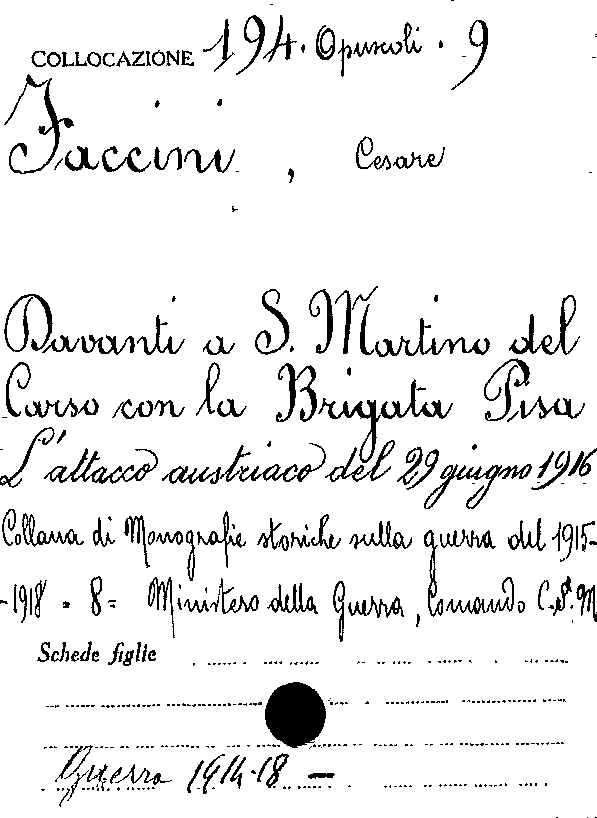 COLLOCAZIONE 194. Opuscoli. 9
Faccini, Cesare
Davanti a S. Martino del
Carso con la Brigata Pisa
L'attacco austriaco del 29 giugno 1916
Collana di Monografie storiche sulla guerra del 1915-
-1918 = 8= Ministero della Guerra, Comando C. S. M
Schede figlie
Guerra 1914-18 —